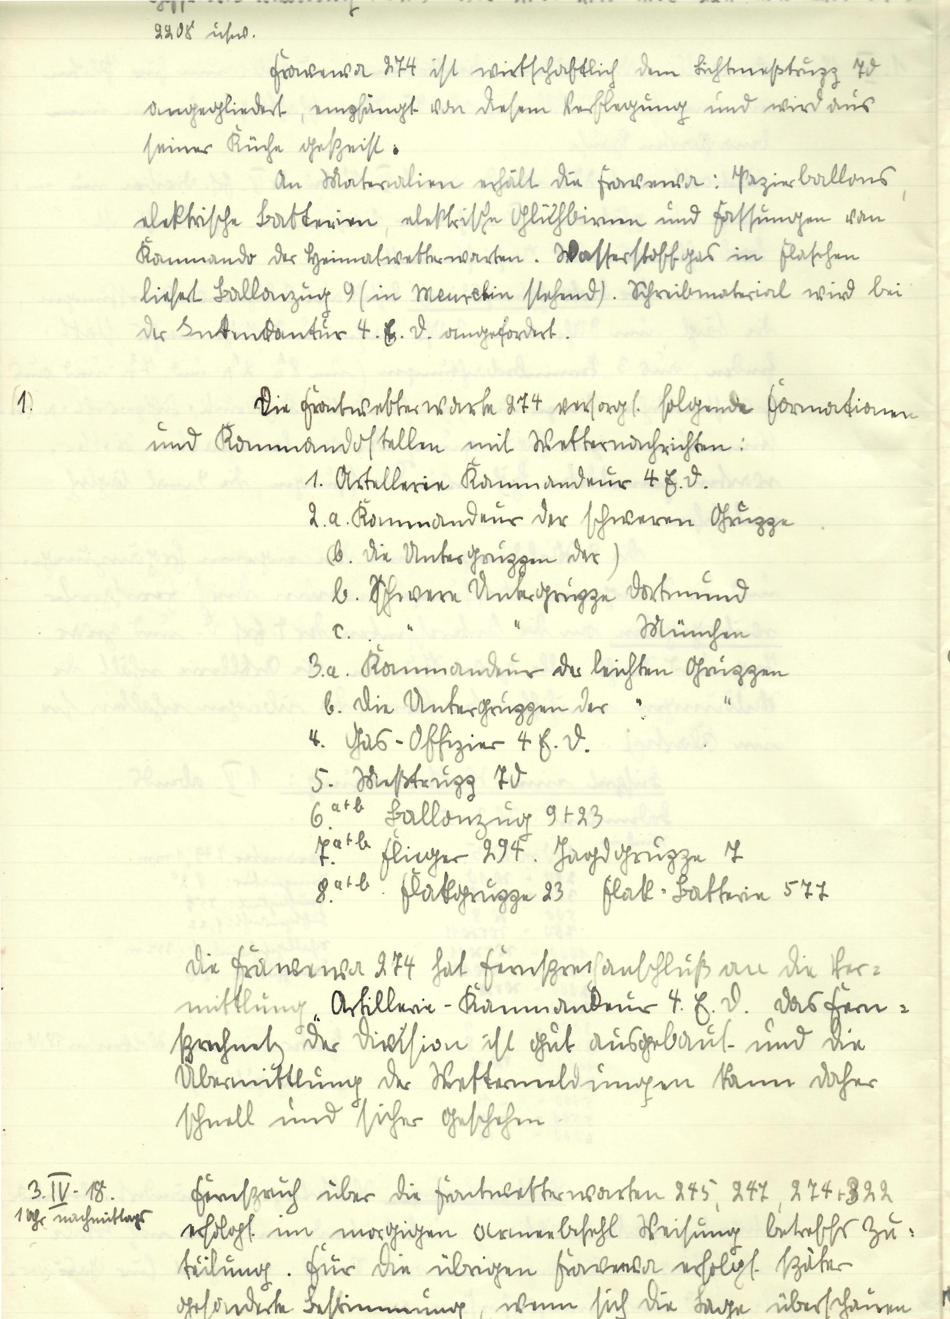 2208 usw.
Frawewa 274 ist wirtschaftlich dem Lichtmeßtrupp 7d
angegliedert, empfängt von diesem Verpflegung und wird aus
seiner Küche gespeist.
An Materialien erhält die Frawewa: Papierballons,
elektrische Batterien, elektrische Glühbirnen und Fassungen vom
Kommando der Heimatwetterwarten. Wasserstoffgas in Flaschen
liefert Ballonzug 9 (in stehend). Schreibmaterial wird bei
der Intendantur 4. E. D. angefordert.
(1.) Die Frontwetterwarte 274 versorgt folgende Formationen
und Kommandostellen mit Wetternachrichten:
1. Artellerie Kommandeur 4 E.D.
2.a. Kommandeur der schweren Gruppe
(b. die Untergruppen der)
b. Schwere Untergruppe Dortmund
c. " " München
3.a. Kommandeur der leichten Gruppen
b. die Untergruppen der " "
4. Gas-Offizier 4 E. D.
5. Meßtrupp 7d
6. a+b Ballonzug 9+23
7. a+b Flieger 294. Jagdgruppe 7
8. a+b Flakgruppe 23 Flak-Batterie 577
Die Frawewa 274 hat Fernsprechanschluß an die Ver=
mittlung „Artillerie-Kommandeur 4. E. D. Das Fern=
sprechnetz der Division ist gut ausgebaut und die
Übermittlung der Wettermeldungen kann daher
schnell und sicher geschehen
3.IV.18. Fernspruch über die Frontwetterwarten 245, 247, 274+322
1 Uhr nachmittags erfolgt im morgigen Armeebefehl Weisung betreffs Zu=
teilung. Für die übrigen Frawewa erfolgt später
gesonderte Bestimmung, wenn sich die Lage überschauen